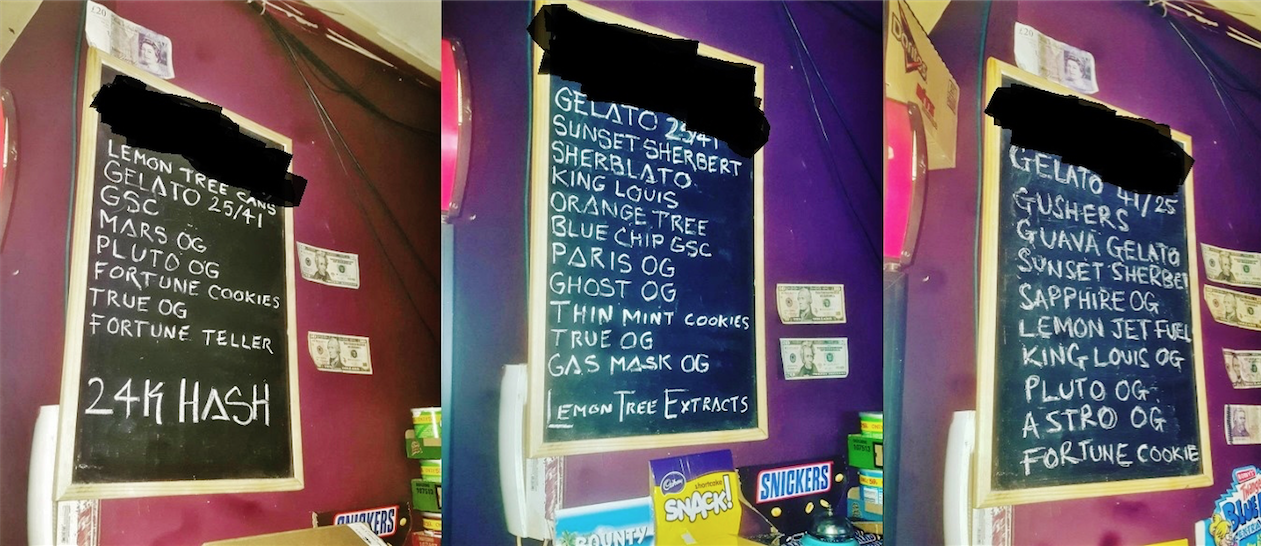 £20
LEMON TREE CANS
GELATO 25/41
GSC
MARS OG
PLUTO OG
FORTUNE COOKIES
TRUE OG
FORTUNE TELLER
24K HASH
SNICKERS
GELATO 25/41
SUNSET SHERBERT
SHERBLATO
KING LOUIS
ORANGE TREE
BLUE CHIP GSC
PARIS OG
GHOST OG
THIN MINT COOKIES
TRUE OG
GAS MASK OG
LEMON TREE EXTRACTS
BOUNTY
Cadbury
shortcake
SNACK!
SNICKERS
Doritos
£20
GELATO 41/25
GUSHERS
GUAVA GELATO
SUNSET SHERBE
SAPPHIRE OG
LEMON JET FUEL
KING LOUIS OG
PLUTO OG
ASTRO OG
FORTUNE COOKIE